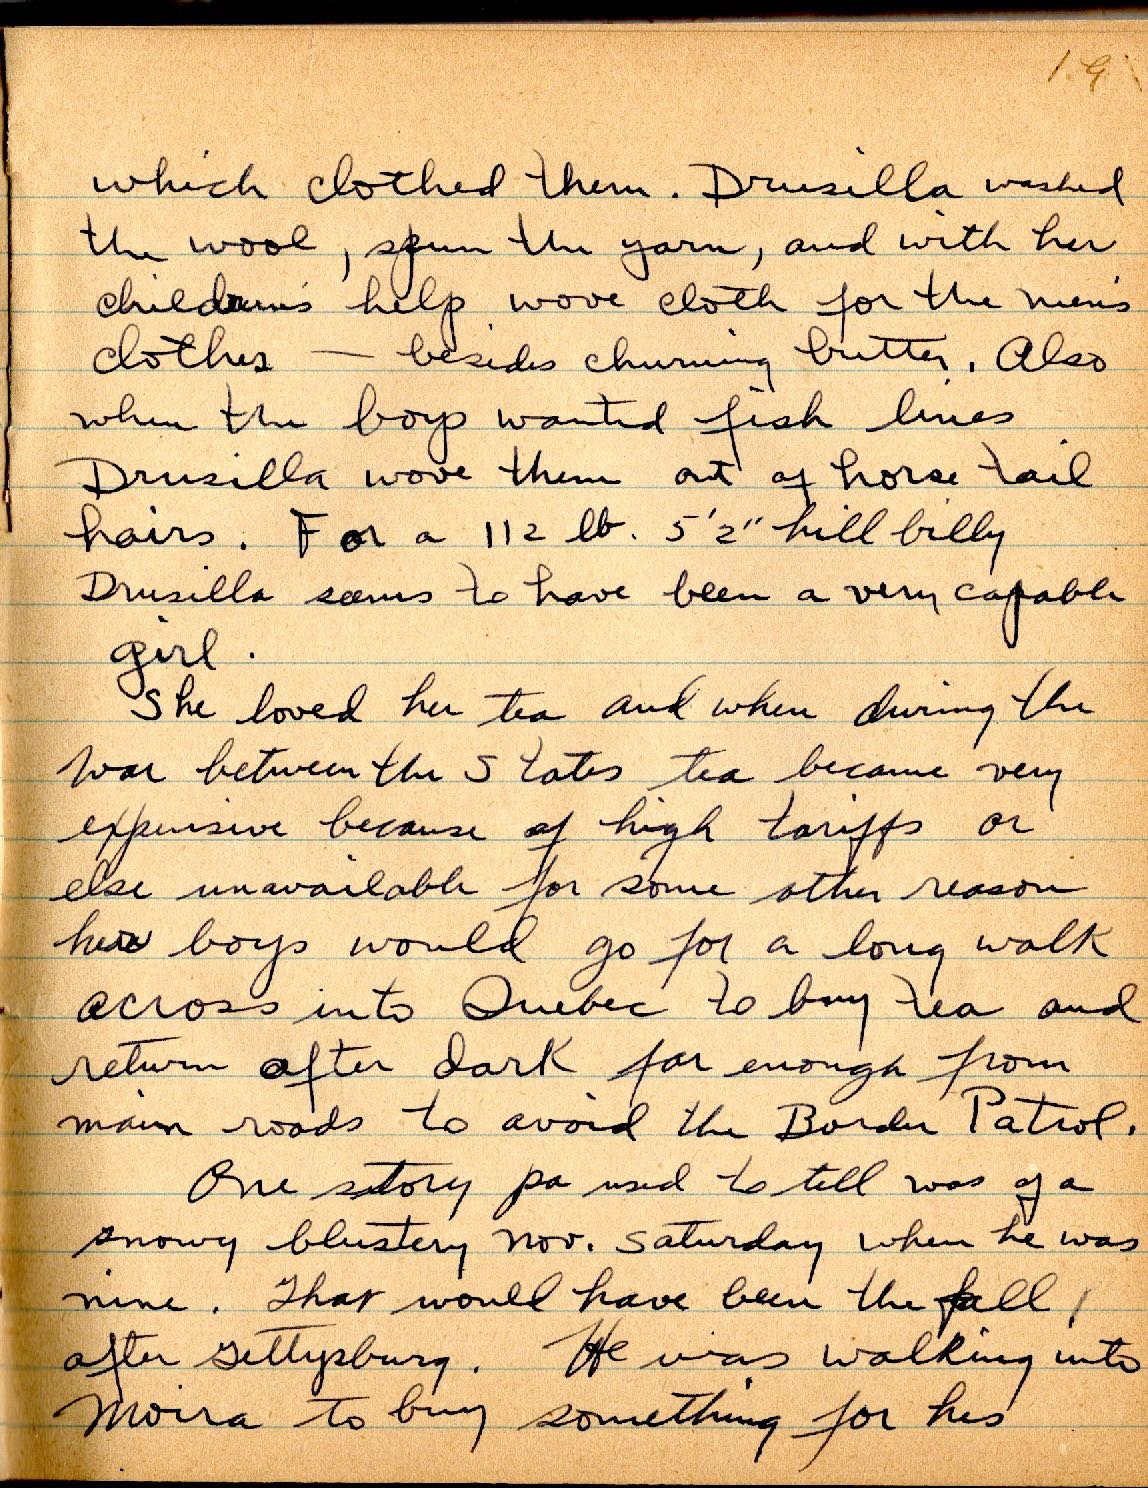 19
which clothed them. Drusilla washed
the wool, spun the yarn, and with her
children's help wove cloth for the men's
clothes — besides churning butter. Also
when the boys wanted fish lines
Drusilla wove them out of horse tail
hairs. For a 112 lb. 5'2" hill billy
Drusilla seems to have been a very capable
girl.
She loved her tea and when during the
War between the States tea became very
expensive because of high tariffs or
else unavailable for some other reason
her boys would go for a long walk
across into Quebec to buy tea and
return after dark far enough from
main roads to avoid the Border Patrol.
One story pa used to tell was of a
snowy blustery Nov. Saturday when he was
nine. That would have been the fall
after Gettysburg. He was walking into
Moira to buy something for his